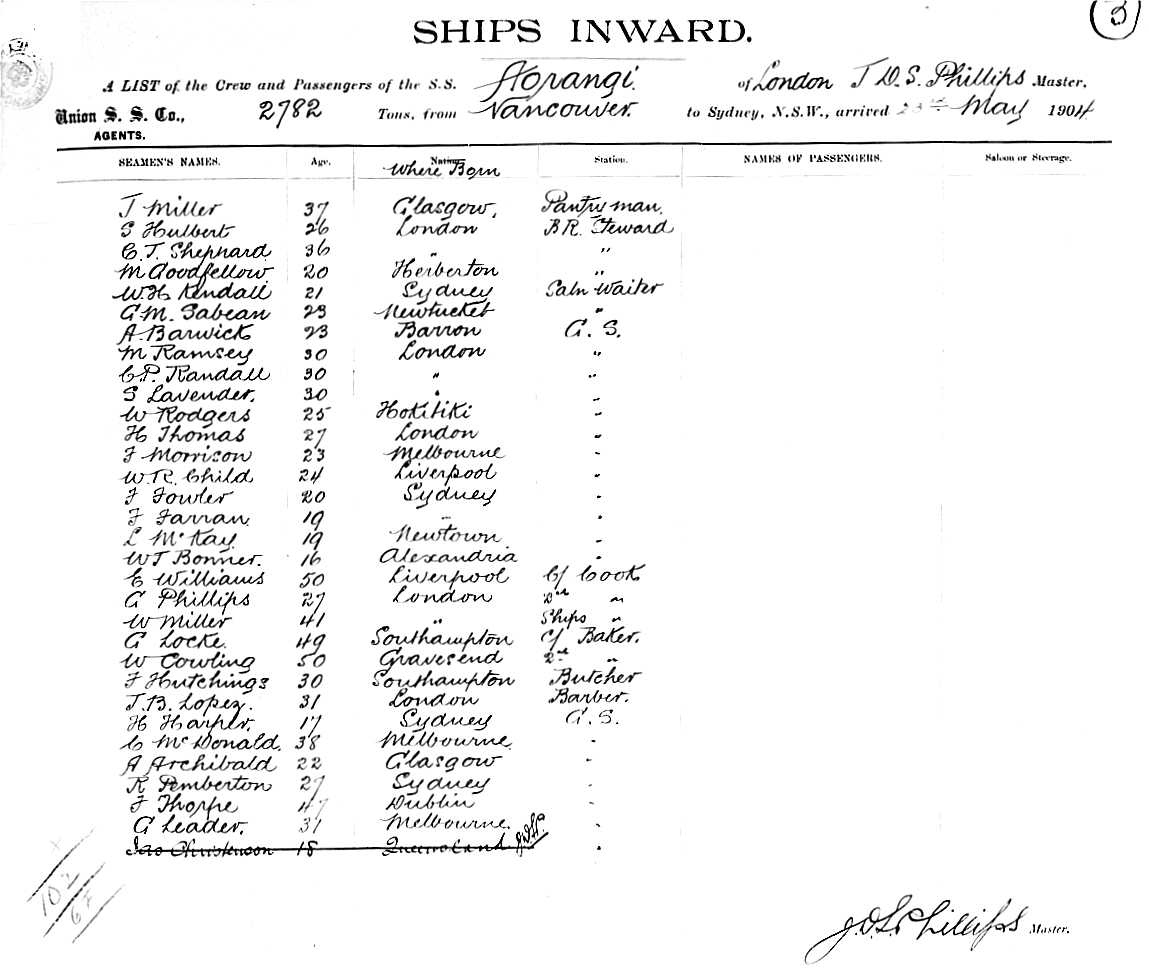 (3)
SHIPS INWARD.
A LIST of the Crew and Passengers of the S.S. Aorangi. of London J D. S. Phillips Master,
Union S. S. Co., AGENTS. 2782 Tons, from Vancouver. to Sydney, N.S.W., arrived May 1904
SEAMEN'S NAMES. Age. Where Born Station. NAMES OF PASSENGERS. Saloon or Steerage.
J Miller 37 Glasgow, Pantryman.
S Hulbert 26 London B R. Steward
C. T. Sheppard 36 " "
M Goodfellow 20 Herberton "
W. H Kendall 21 Sydney Saln Waiter
G. M. Sabean 23 Newtucket "
A. Barwick 23 Barron G. S.
M Ramsey 30 London "
C. P. Randall 30 " "
S Lavender. 30 " "
W Rodgers 25 Hokitiki "
H Thomas 27 London "
F Morrison 23 Melbourne "
W. R. Child 24 Liverpool "
F Fowler 20 Sydney "
F Farran. 19 " "
L McKay. 19 Newtown. "
W J Bonner. 16 Alexandria "
E Williams 50 Liverpool C/ Cook
G Phillips 27 London 2nd "
W Miller 41 " Ships "
G Locke. 49 Southampton C/ Baker.
W Cowling 50 Gravesend 2nd "
F Hutchings 30 Southampton Butcher
J. B. Lopez. 31 London Barber.
H Harper. 17 Sydney G. S.
C McDonald. 38 Melbourne. "
A Archibald 22 Glasgow "
R Pemberton 27 Sydney "
F Thorpe 47 Dublin "
G Leader. 31 Melbourne. "
Jas Christenson 18 Queensland J.D.S.P. "
102
62
J. D. S. Phillips Master.